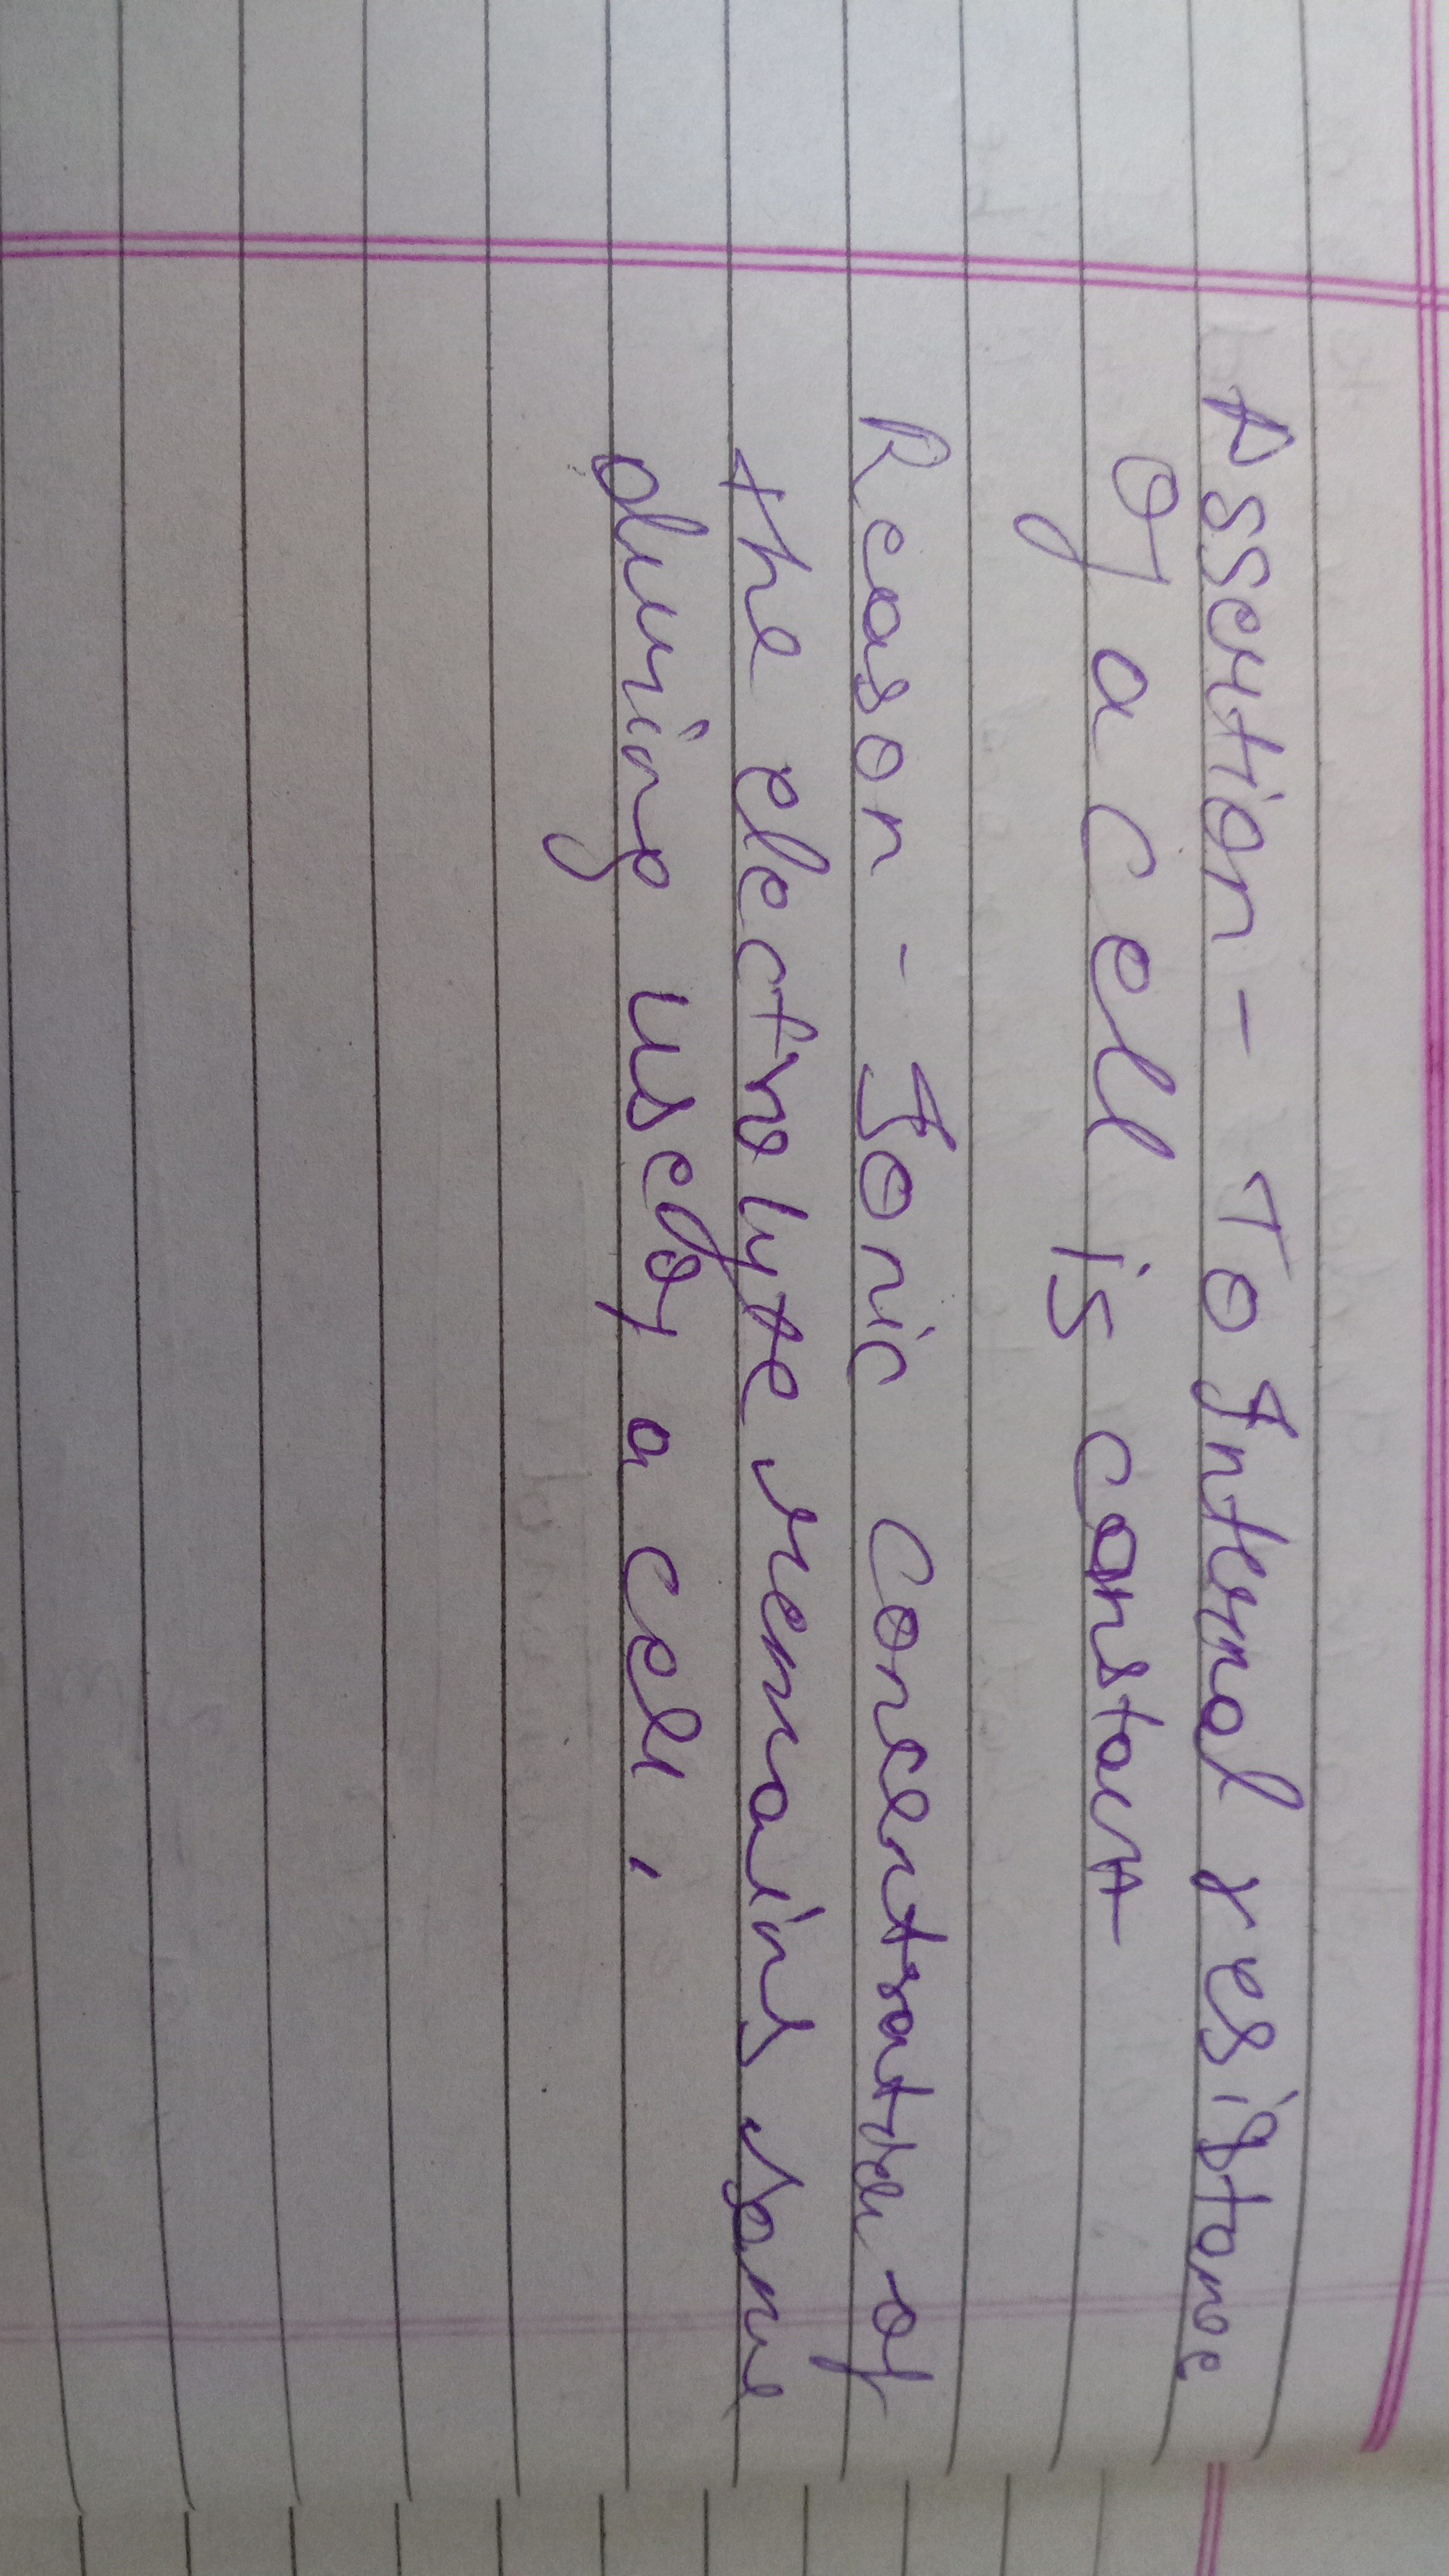 Assertion - To Internal resistance
Of a cell is constant
Reason - Ionic concentration of
the electrolyte remains same
during use of a cell.